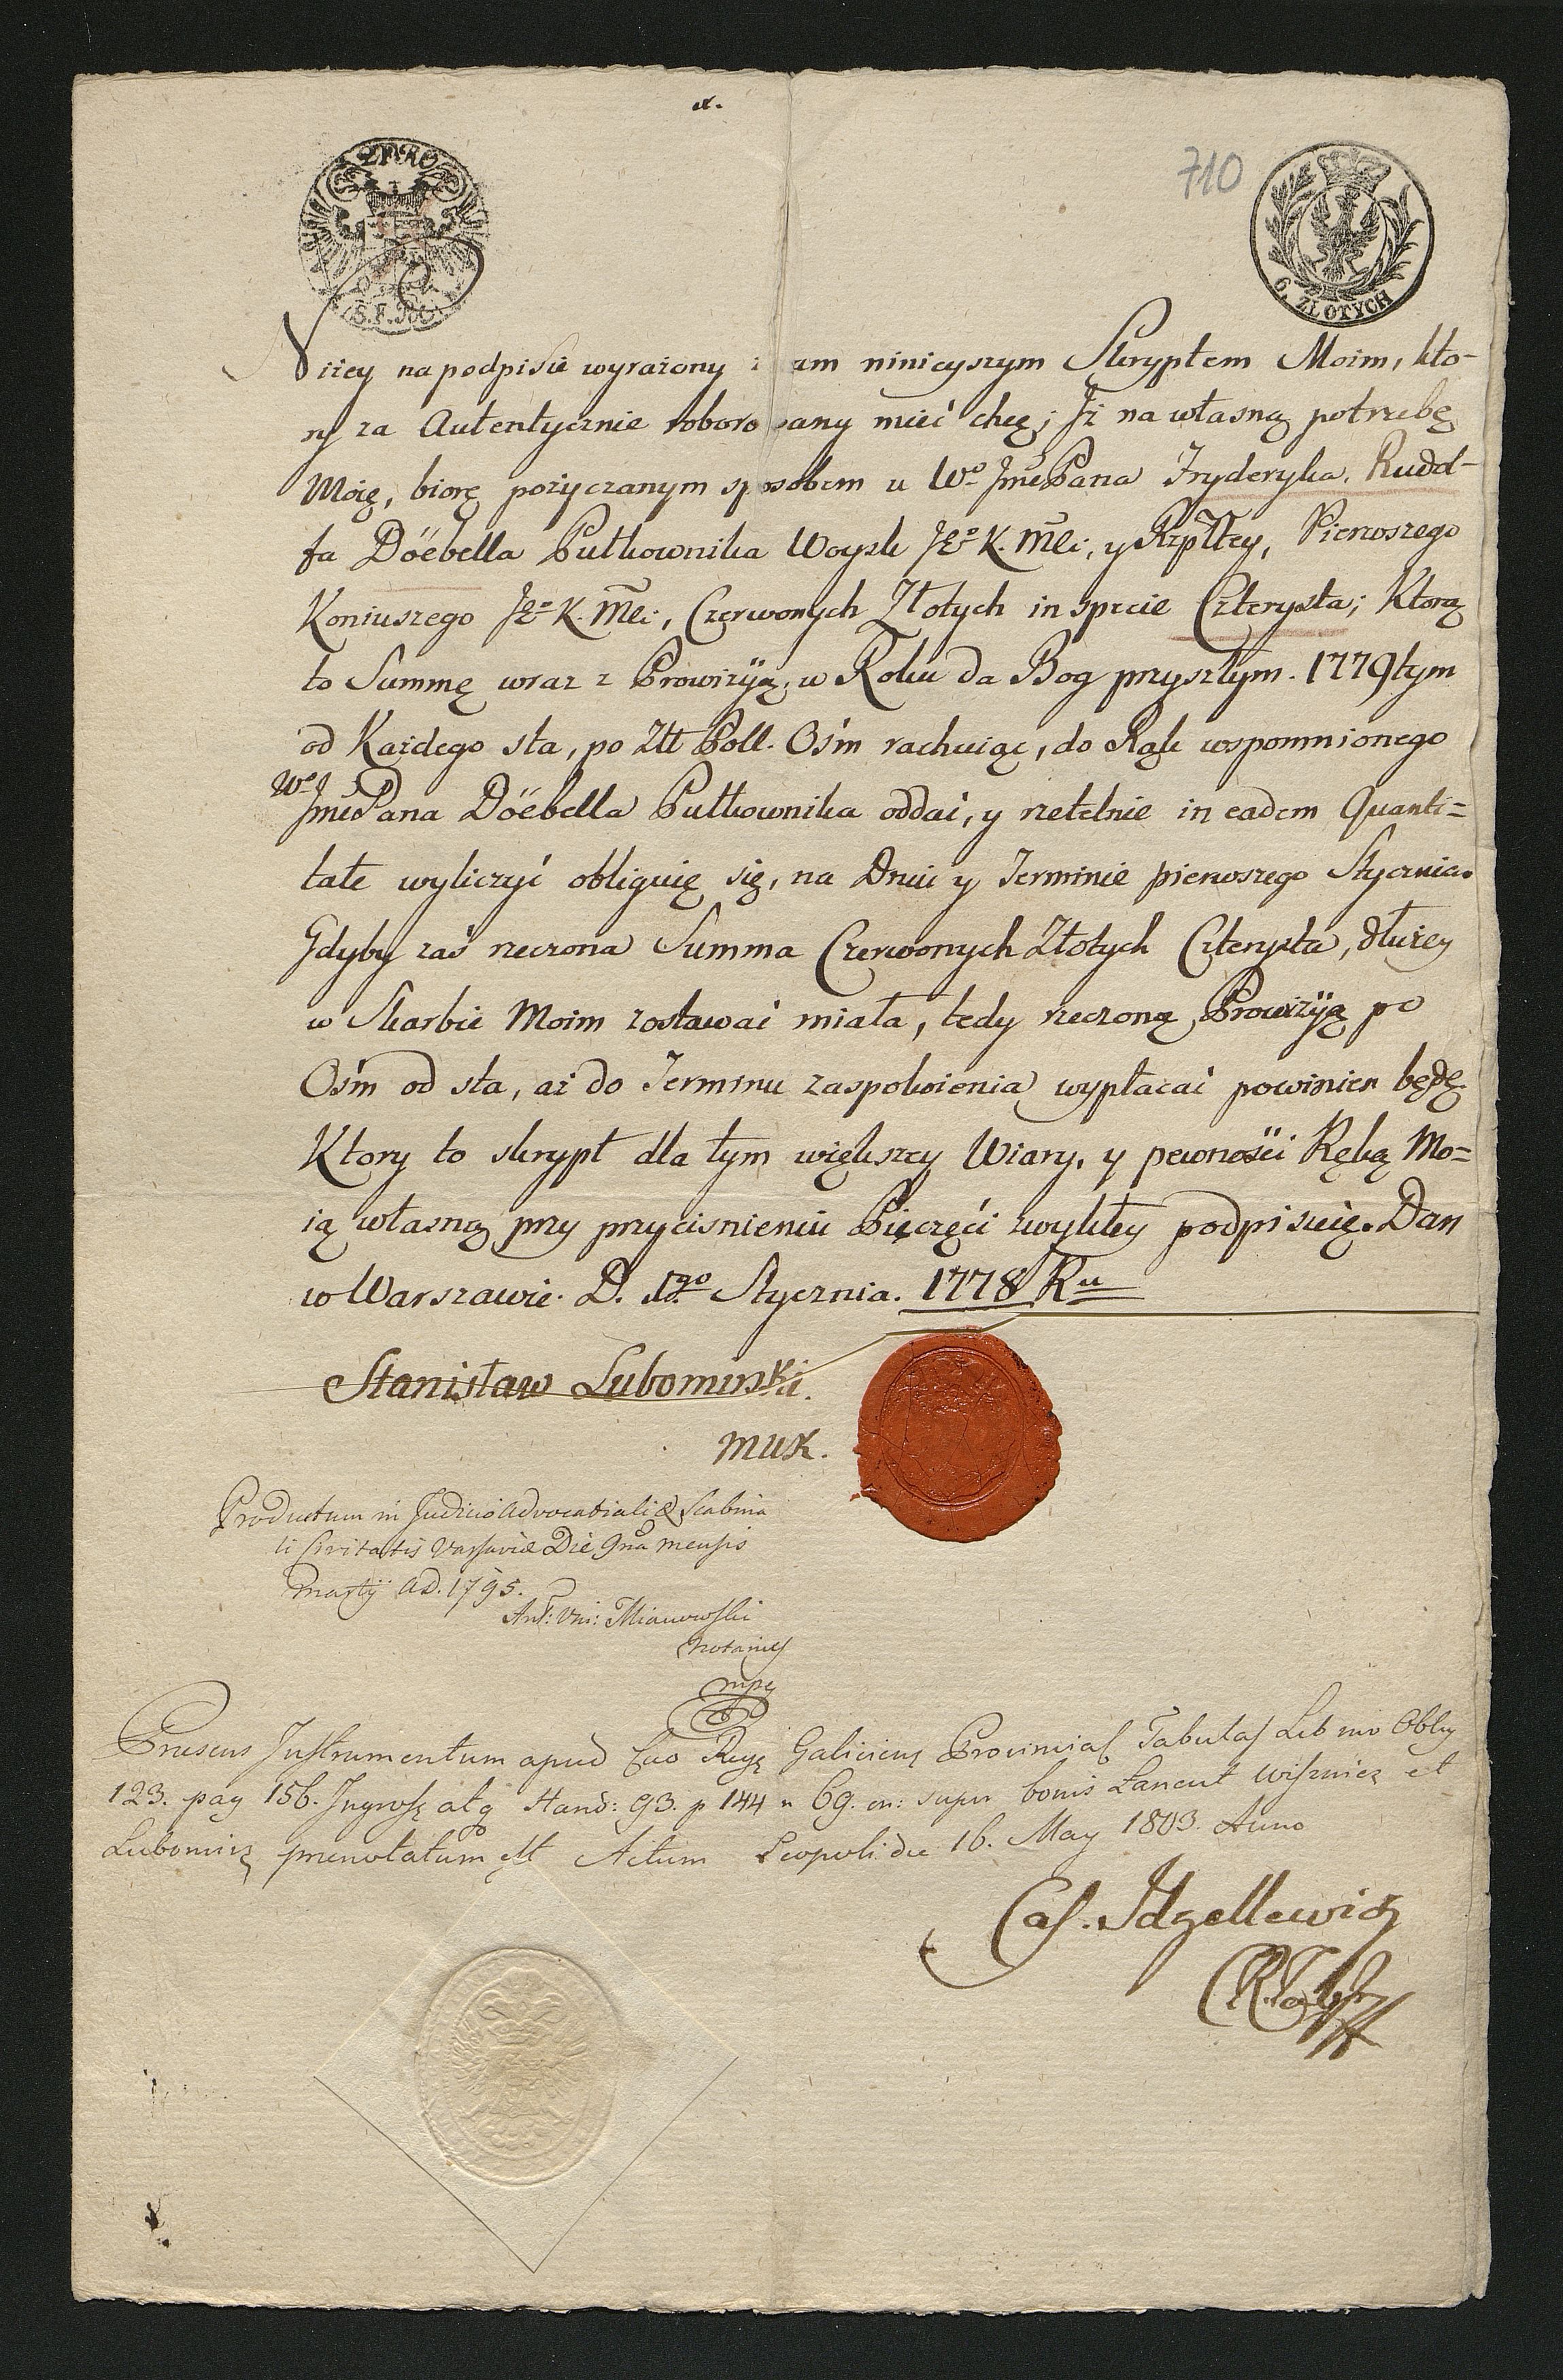 α.
710
2 FR 30
S.F. Xr.
6. ZŁOTYCH
Niżey na podpisie wyrażony zeznam ninieyszym Skryptem Moim, kto-
ry za Autentycznie roborowany mieć chcę; Iż na własną potrzebę
Moię, biorę pożyczanym sposobem u Wo JmćPana Fryderyka Rudol-
fa Döebella Pułkownika Woysk JKo K. Mci, y Rzpltey, Pierwszego
Koniuszego JKo K. Mci, Czerwonych Złotych in specie Czterysta; Ktorą
to Summę wraz z Prowizyą, w Roku da Bog przyszłym. 1779tym
od Każdego sta, po Złt Poll. Ośm rachuiąc, do Rąk wspomnionego
Wo JmćPana Döebella Pułkownika oddać, y rzetelnie in eadem Quanti=
tate wyliczyć obliguię się, na Dniu y Terminie pierwszego Stycznia.
Gdyby zaś rzeczona Summa Czerwonych Złotych Czterysta, dłużey
w Skarbie Moim zostawać miała, tedy rzeczoną Prowizyą po
Ośm od sta, aż do Terminu zaspokoienia wypłacać powinien będę
Ktory to skrypt dla tym większey Wiary, y pewności Ręką Mo=
ią własną przy przyciśnieniu Pięczęći zwykłey podpisuię. Dan
w Warszawie. D. 1go Stycznia. 1778 Ru
Stanisław Lubomirski.
MWK.
Productum in Judicio Advocatiali & Scabina
li Civitatis Varsaviæ Die 9na mensis
Martij AD. 1795.
Ant: Vin: Mianowski
Notarius
mpp
Præsens Instrumentum apud Cæs Reg Galiciens Provincial Tabulas Libro Oblig
123. pag 156. Ingross atq Hand: 93. p 144 n 69. on: super bonis Łancut Wisznicz et
Lubomirz prænotatum est Actum Leopoli die 16. May 1803. Anno
Cas. Idzellewicz